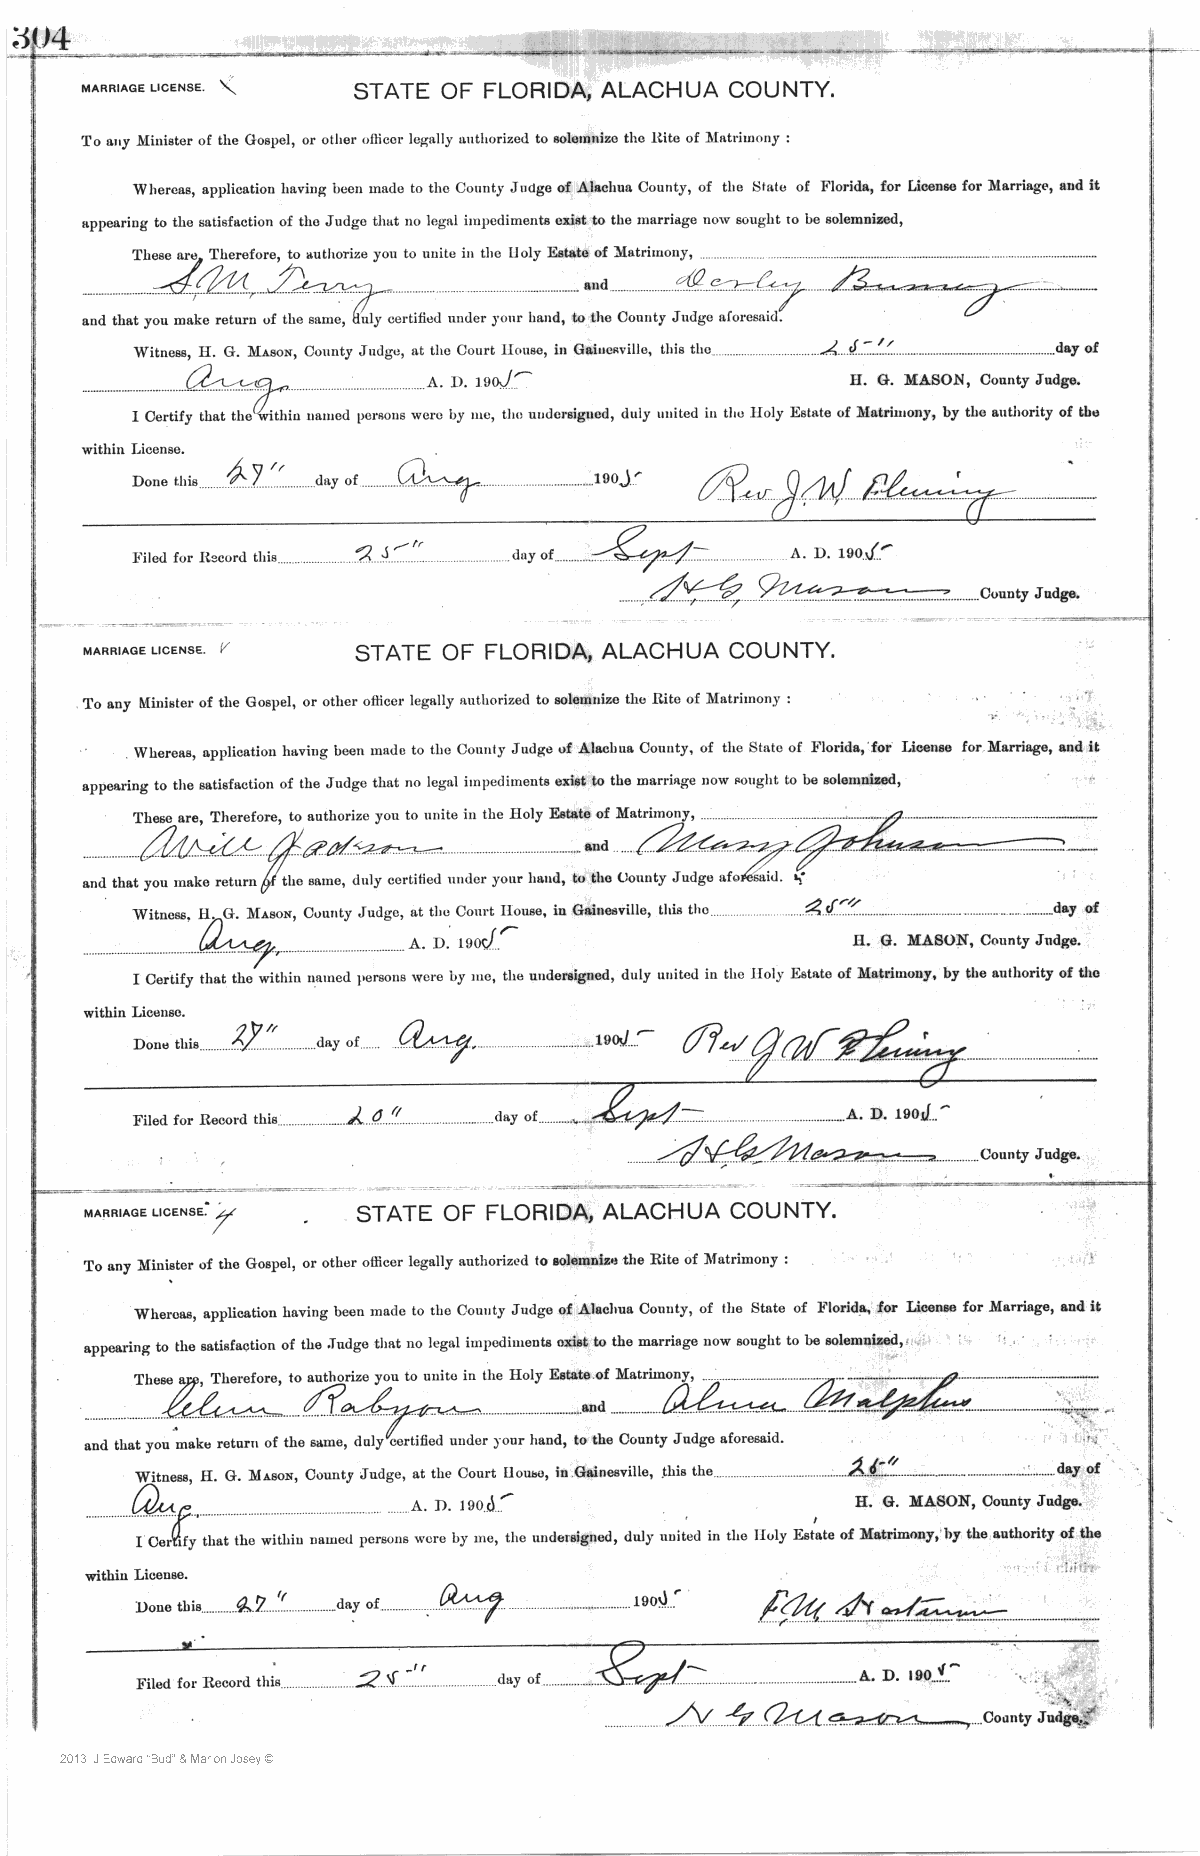 304
MARRIAGE LICENSE. STATE OF FLORIDA, ALACHUA COUNTY.
To any Minister of the Gospel, or other officer legally authorized to solemnize the Rite of Matrimony :
Whereas, application having been made to the County Judge of Alachua County, of the State of Florida, for License for Marriage, and it
appearing to the satisfaction of the Judge that no legal impediments exist to the marriage now sought to be solemnized,
These are, Therefore, to authorize you to unite in the Holy Estate of Matrimony,
S. M. Terry and
and that you make return of the same, duly certified under your hand, to the County Judge aforesaid.
Witness, H. G. MASON, County Judge, at the Court House, in Gainesville, this the 25" day of
Aug. A. D. 1905 H. G. MASON, County Judge.
I Certify that the within named persons were by me, the undersigned, duly united in the Holy Estate of Matrimony, by the authority of the
within License.
Done this 27" day of Aug 1905 Rev J. W. Fleming
Filed for Record this 25" day of Sept A. D. 1905
H. G. Mason County Judge.
MARRIAGE LICENSE. STATE OF FLORIDA, ALACHUA COUNTY.
To any Minister of the Gospel, or other officer legally authorized to solemnize the Rite of Matrimony :
Whereas, application having been made to the County Judge of Alachua County, of the State of Florida, for License for Marriage, and it
appearing to the satisfaction of the Judge that no legal impediments exist to the marriage now sought to be solemnized,
These are, Therefore, to authorize you to unite in the Holy Estate of Matrimony,
Will Jackson and Mary Johnson
and that you make return of the same, duly certified under your hand, to the County Judge aforesaid.
Witness, H. G. MASON, County Judge, at the Court House, in Gainesville, this the 25" day of
Aug. A. D. 1905 H. G. MASON, County Judge.
I Certify that the within named persons were by me, the undersigned, duly united in the Holy Estate of Matrimony, by the authority of the
within License.
Done this 27" day of Aug. 1905 Rev J W Fleming
Filed for Record this 20" day of Sept A. D. 1905
H. G. Mason County Judge.
MARRIAGE LICENSE. STATE OF FLORIDA, ALACHUA COUNTY.
To any Minister of the Gospel, or other officer legally authorized to solemnize the Rite of Matrimony :
Whereas, application having been made to the County Judge of Alachua County, of the State of Florida, for License for Marriage, and it
appearing to the satisfaction of the Judge that no legal impediments exist to the marriage now sought to be solemnized,
These are, Therefore, to authorize you to unite in the Holy Estate of Matrimony,
Rabyon and Alma Malphus
and that you make return of the same, duly certified under your hand, to the County Judge aforesaid.
Witness, H. G. MASON, County Judge, at the Court House, in Gainesville, this the 25" day of
Aug. A. D. 1905 H. G. MASON, County Judge.
I Certify that the within named persons were by me, the undersigned, duly united in the Holy Estate of Matrimony, by the authority of the
within License.
Done this 27" day of Aug 1905 F. M.
Filed for Record this 25" day of Sept A. D. 1905
H G Mason County Judge.
2013 J Edward "Bud" & Marion Josey ©